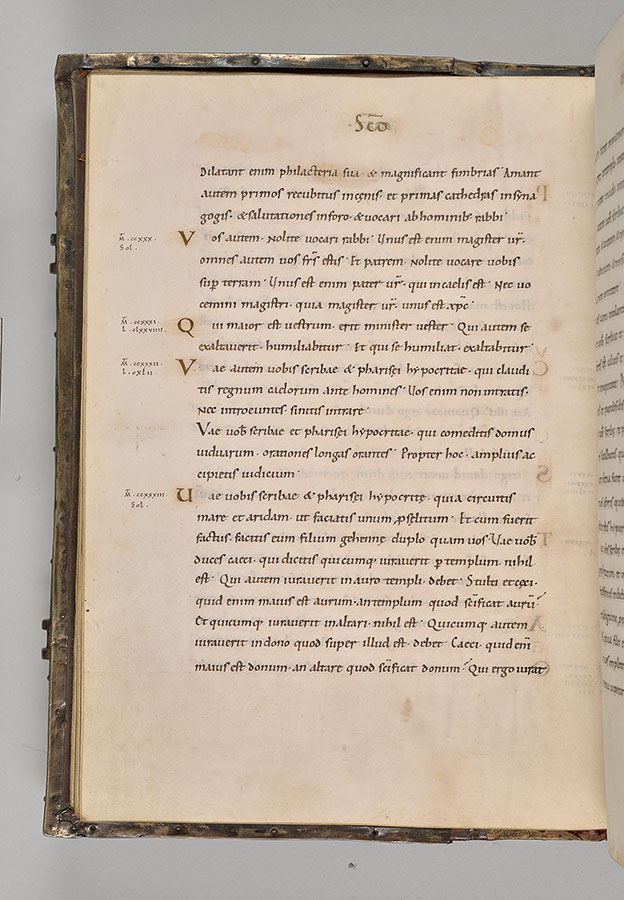 Scd̄
Dilatant enim philacteria sua · & magnificant fimbrias · Amant
autem primos recubitus incenis · et primas cathedras insyna
gogis · & salutationes inforo · & vocari abhominib; rabbi ·
M̄ · ccxxx ·
Sol ·
Vos autem · Nolite vocari rabbi · Unus est enim magister vr̄ ·
omnes autem vos frs̄ estis · Et patrem · Nolite vocare vobis
sup terram · Unus est enim pater vr̄ · qui incaelis est · Nec vo
cemini magistri · quia magister vr̄ · unus est · xp̄c ·
M̄ · ccxxxi ·
Qui maior est vestrum · erit minister vester · Qui autem se
exaltaverit · humiliabitur · Et qui se humiliat · exaltabitur ·
M̄ · ccxxxii ·
Vae autem vobis scribae & pharisei hypocritae · qui claudi
tis regnum caelorum ante homines · Vos enim non intratis ·
Nec introeuntes sinitis intrare ·
Vae vob̄ scribae et pharisei hypocritae · qui comeditis domus
viduarum · orationes longas orantes · Propter hoc · amplius ac
cipietis iudicium ·
M̄ · ccxxxiii ·
Sol ·
Uae vobis scribae & pharisei hypocritę · quia circuitis
mare et aridam · ut faciatis unum proselitum · Et cum fuerit
factus · facitis eum filium gehennę duplo quam vos · Uae vob̄
duces caeci · qui dicitis quicumq; iuraverit p templum · nihil
est · Qui autem iuraverit in auro templi · debet · Stulti et ceci ·
quid enim maius est aurum · an templum quod sc̄ificat aurū ·
Et quicumq; iuraverit in altari · nihil est · Quicumq; autem
iuraverit in dono quod super illud est · debet · Caeci · quid eni̅
maius est donum · an altare quod sc̄ificat donum · Qui ergo iurat